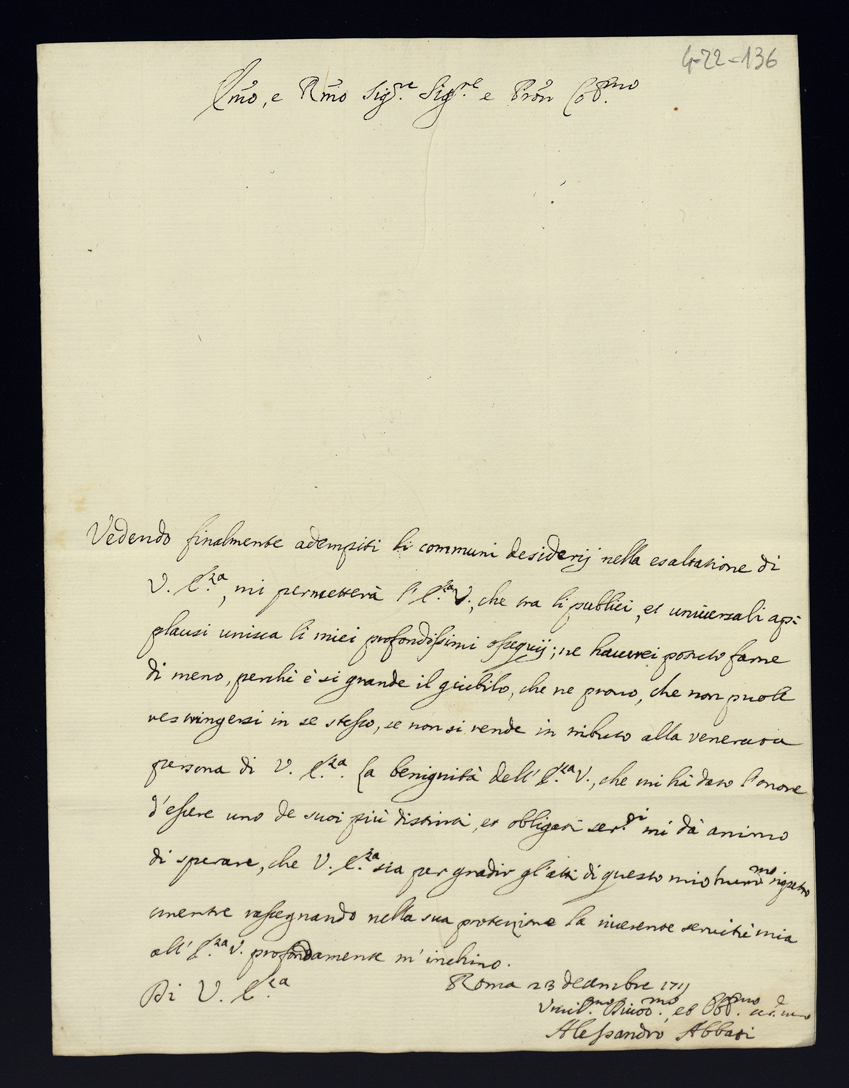 4-22-136
Ill.mo, e R.mo Sig.re Sig.re e Pron Col.mo
Vedendo finalmente adempiti li communi desiderij nella esaltatione di
V. E.za, mi permetterà l'E.za V., che tra li publici, et universali ap-
plausi unisca li miei profondissimi ossequij; ne haverei potuto farne
di meno, perchè è si grande il giubilo, che ne provo, che non puole
restringersi in se stesso, se non si rende in tributo alla venerata
persona di V. E.za. La benignità dell'E.za V., che mi hà dato l'onore
d'essere uno de suoi più distinti, et obligati ser.di mi dà animo
di sperare, che V. E.za sia per gradir gl'atti di questo mio
mentre rassegnando nella sua protezione la riverente servitù mia
all'E.za V. profondamente m'inchino.
Di V. E.za
Roma 23 decembre 1719
Umil.mo Divot.mo, et Obl.mo
Alessandro Abbati